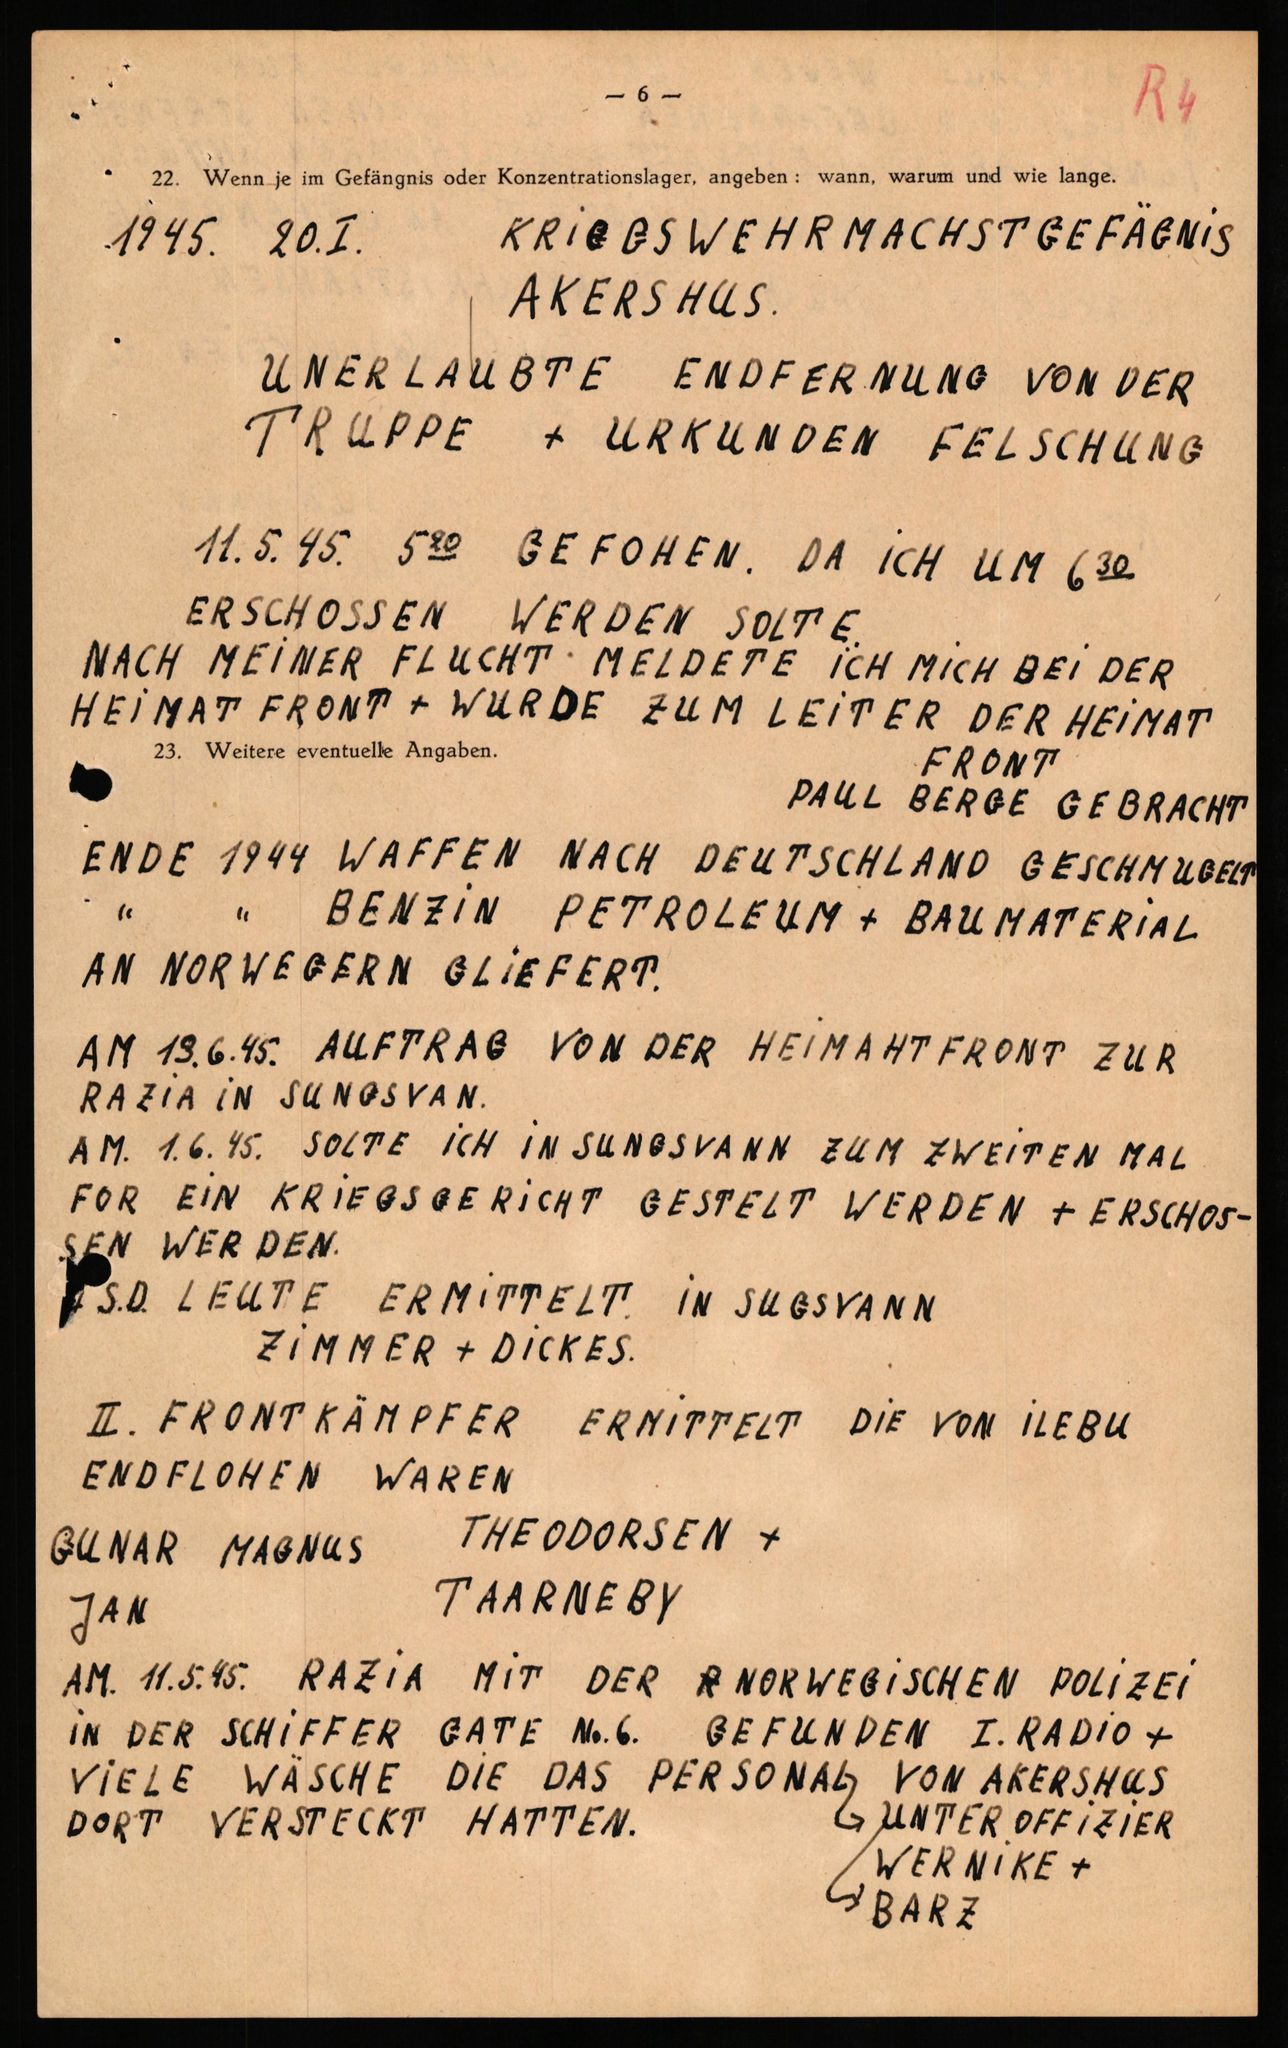 — 6 —
R 4
22. Wenn je im Gefängnis oder Konzentrationslager, angeben: wann, warum und wie lange.
1945. 20.I. KRIEGSWEHRMACHSTGEFÄGNIS
AKERSHUS.
UNERLAUBTE ENDFERNUNG VON DER
TRUPPE + URKUNDEN FELSCHUNG
11.5.45. 5 20 GEFOHEN. DA ICH UM 6 30
ERSCHOSSEN WERDEN SOLTE.
NACH MEINER FLUCHT MELDETE ICH MICH BEI DER
HEIMAT FRONT + WURDE ZUM LEITER DER HEIMAT
FRONT
23. Weitere eventuelle Angaben.
PAUL BERGE GEBRACHT
ENDE 1944 WAFFEN NACH DEUTSCHLAND GESCHMUGELT
" " BENZIN PETROLEUM + BAUMATERIAL
AN NORWEGERN GLIEFERT.
AM 19.6.45. AUFTRAG VON DER HEIMAHTFRONT ZUR
RAZIA IN SUNGSVAN.
AM. 1.6.45. SOLTE ICH IN SUNGSVANN ZUM ZWEITEN MAL
FOR EIN KRIEGSGERICHT GESTELT WERDEN + ERSCHOS-
SEN WERDEN.
S.D. LEUTE ERMITTELT. IN SUGSVANN
ZIMMER + DICKES.
II. FRONTKÄMPFER ERMITTELT DIE VON ILEBU
ENDFLOHEN WAREN
GUNAR MAGNUS THEODORSEN +
JAN TAARNEBY
AM. 11.5.45. RAZIA MIT DER NORWEGISCHEN POLIZEI
IN DER SCHIFFER GATE No. 6. GEFUNDEN I. RADIO +
VIELE WÄSCHE DIE DAS PERSONAL VON AKERSHUS
DORT VERSTECKT HATTEN. UNTEROFFIZIER
WERNIKE +
BARZ